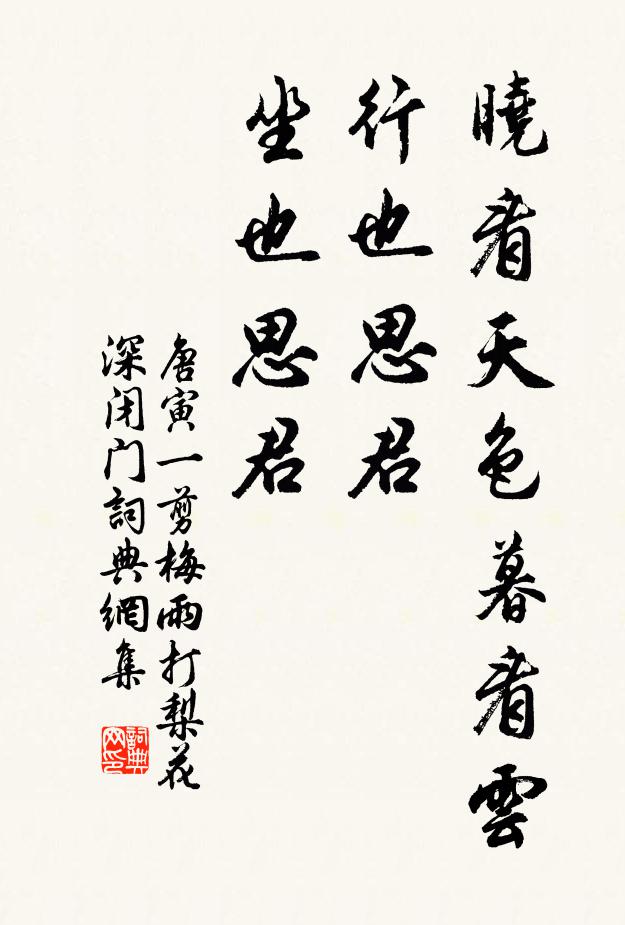 曉看天色暮看雲
行也思君
坐也思君
唐寅一剪梅雨打梨花
深闭门詞典網集
詞典网印